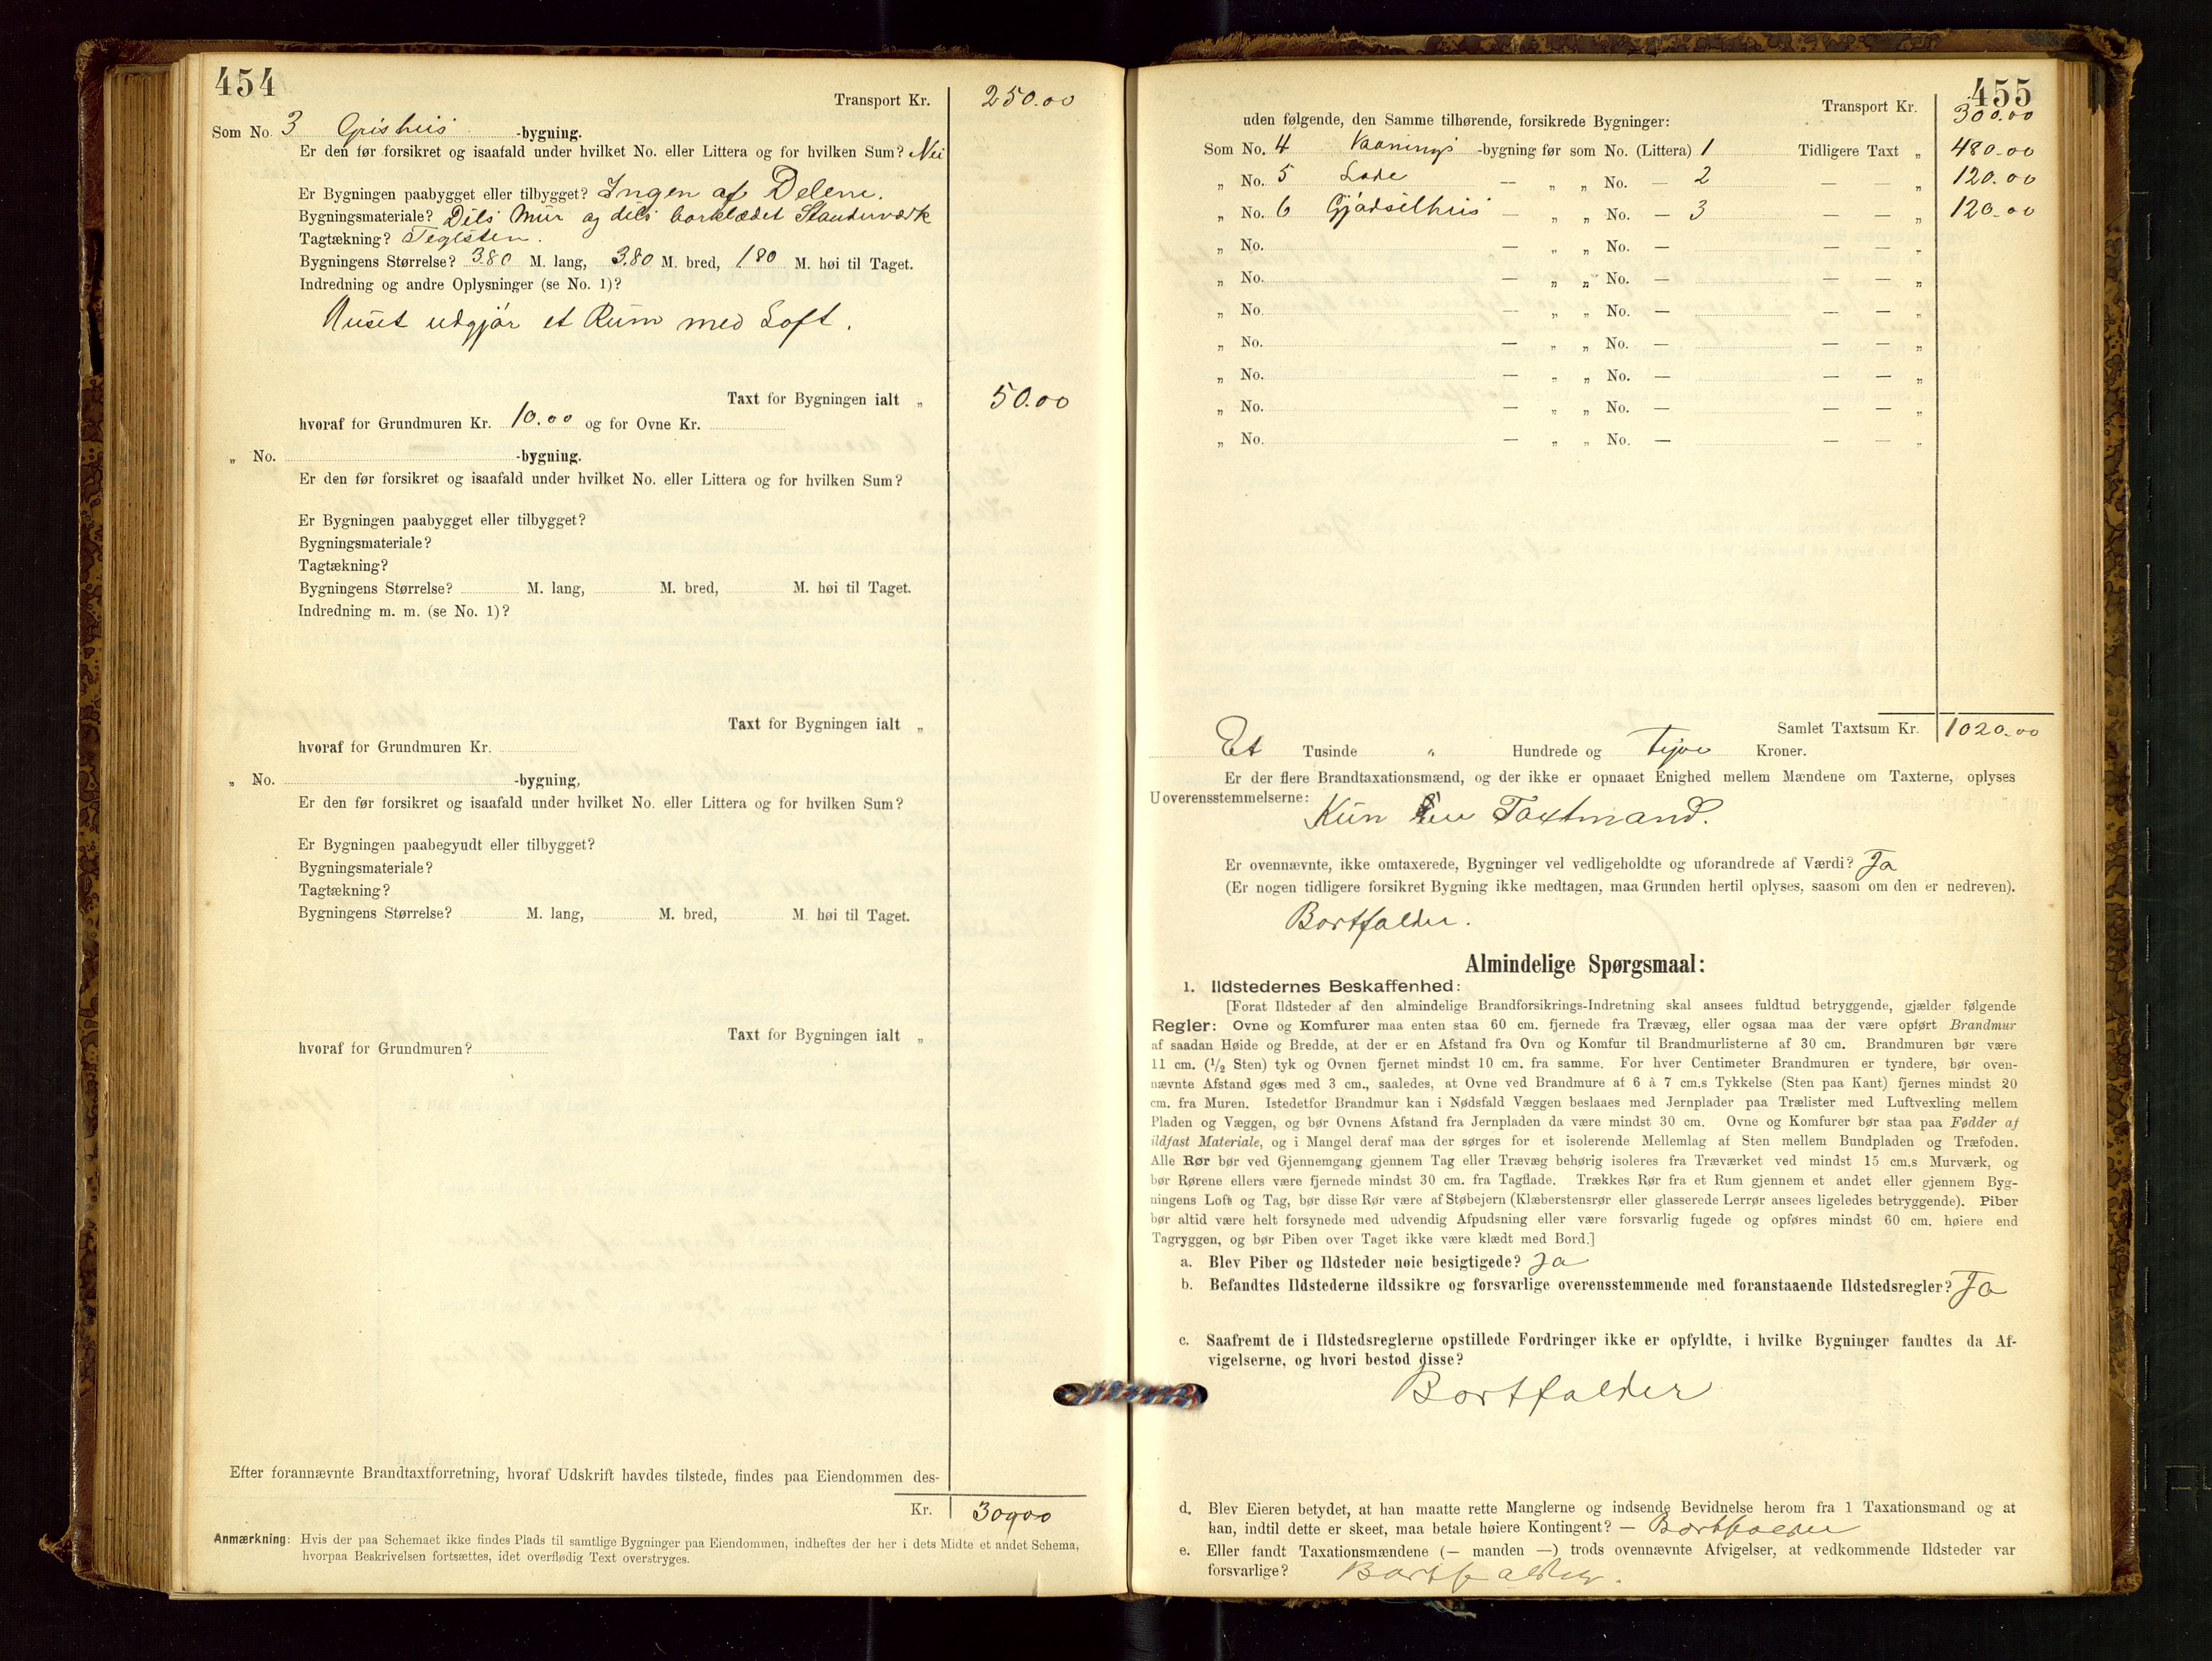 454
Transport Kr. 250.00
Som No. 3 Grishus -bygning.
Er den før forsikret og isaafald under hvilket No. eller Littera og for hvilken Sum? Nei
Er Bygningen paabygget eller tilbygget? Ingen af Delene.
Bygningsmateriale? Dels Mur og dels bordklædet Standerværk
Tagtækning? Teglsten.
Bygningens Størrelse? 3.80 M. lang, 3.80 M. bred, 1.80 M. høi til Taget.
Indredning og andre Oplysninger (se No. 1)?
Huset udgjør et Rum med Loft.
Taxt for Bygningen ialt „ 50.00
hvoraf for Grundmuren Kr. 10.00 og for Ovne Kr.
„ No. -bygning.
Er den før forsikret og isaafald under hvilket No. eller Littera og for hvilken Sum?
Er Bygningen paabygget eller tilbygget?
Bygningsmateriale?
Tagtækning?
Bygningens Størrelse? M. lang, M. bred, M. høi til Taget.
Indredning m. m. (se No. 1)?
Taxt for Bygningen ialt „
hvoraf for Grundmuren Kr.
„ No. -bygning,
Er den før forsikret og isaafald under hvilket No. eller Littera og for hvilken Sum?
Er Bygningen paabegyudt eller tilbygget?
Bygningsmateriale?
Tagtækning?
Bygningens Størrelse? M. lang, M. bred, M. høi til Taget.
Taxt for Bygningen ialt „
hvoraf for Grundmuren?
Efter forannævnte Brandtaxtforretning, hvoraf Udskrift havdes tilstede, findes paa Eiendommen des-
Kr. 300.00
Anmærkning: Hvis der paa Schemaet ikke findes Plads til samtlige Bygninger paa Eiendommen, indheftes der her i dets Midte et andet Schema,
hvorpaa Beskrivelsen fortsættes, idet overflødig Text overstryges.
455
Transport Kr. 300.00
uden følgende, den Samme tilhørende, forsikrede Bygninger:
Som No. 4 Vaanings -bygning før som No. (Littera) 1 Tidligere Taxt „ 480.00
„ No. 5 Lade — „ „ No. — 2 — — „ 120.00
„ No. 6 Gjødselhus — „ „ No. — 3 — — „ 120.00
„ No. — „ „ No. — — — „
„ No. — „ „ No. — — — „
„ No. — „ „ No. — — — „
„ No. — „ „ No. — — — „
„ No. — „ „ No. — — — „
„ No. — „ „ No. — — — „
„ No. — „ „ No. — — — „
Samlet Taxtsum Kr. 1020.00
Et Tusinde „ Hundrede og tyve Kroner.
Er der flere Brandtaxationsmænd, og der ikke er opnaaet Enighed mellem Mændene om Taxterne, oplyses
Uoverensstemmelserne:
Kun en Taxtmand.
Er ovennævnte, ikke omtaxerede, Bygninger vel vedligeholdte og uforandrede af Værdi? Ja
(Er nogen tidligere forsikret Bygning ikke medtagen, maa Grunden hertil oplyses, saasom om den er nedreven).
Bortfalder.
Almindelige Spørgsmaal:
1. Ildstedernes Beskaffenhed:
[Forat Ildsteder af den almindelige Brandforsikrings-Indretning skal ansees fuldtud betryggende, gjælder følgende
Regler: Ovne og Komfurer maa enten staa 60 cm. fjernede fra Trævæg, eller ogsaa maa der være opført Brandmur
af saadan Høide og Bredde, at der er en Afstand fra Ovn og Komfur til Brandmurlisterne af 30 cm. Brandmuren bør være
11 cm. (1/2 Sten) tyk og Ovnen fjernet mindst 10 cm. fra samme. For hver Centimeter Brandmuren er tyndere, bør oven-
nævnte Afstand øges med 3 cm., saaledes, at Ovne ved Brandmure af 6 à 7 cm.s Tykkelse (Sten paa Kant) fjernes mindst 20
cm. fra Muren. Istedetfor Brandmur kan i Nødsfald Væggen beslaaes med Jernplader paa Trælister med Luftvexling mellem
Pladen og Væggen, og bør Ovnens Afstand fra Jernpladen da være mindst 30 cm. Ovne og Komfurer bør staa paa Fødder af
ildfast Materiale, og i Mangel deraf maa der sørges for et isolerende Mellemlag af Sten mellem Bundpladen og Træfoden.
Alle Rør bør ved Gjennemgang gjennem Tag eller Trævæg behørig isoleres fra Træværket ved mindst 15 cm.s Murværk, og
bør Rørene ellers være fjernede mindst 30 cm. fra Tagflade. Trækkes Rør fra et Rum gjennem et andet eller gjennem Byg-
ningens Loft og Tag, bør disse Rør være af Støbejern (Klæberstensrør eller glasserede Lerrør ansees ligeledes betryggende). Piber
bør altid være helt forsynede med udvendig Afpudsning eller være forsvarlig fugede og opføres mindst 60 cm. høiere end
Tagryggen, og bør Piben over Taget ikke være klædt med Bord.]
a. Blev Piber og Ildsteder nøie besigtigede? Ja
b. Befandtes Ildstederne ildssikre og forsvarlige overensstemmende med foranstaaende Ildstedsregler? Ja
c. Saafremt de i Ildstedsreglerne opstillede Fordringer ikke er opfyldte, i hvilke Bygninger fandtes da Af-
vigelserne, og hvori bestod disse?
Bortfalder
d. Blev Eieren betydet, at han maatte rette Manglerne og indsende Bevidnelse herom fra 1 Taxationsmand og at
han, indtil dette er skeet, maa betale høiere Kontingent? — Bortfalder
e. Eller fandt Taxationsmændene (— manden —) trods ovennævnte Afvigelser, at vedkommende Ildsteder var
forsvarlige? Bortfalder.